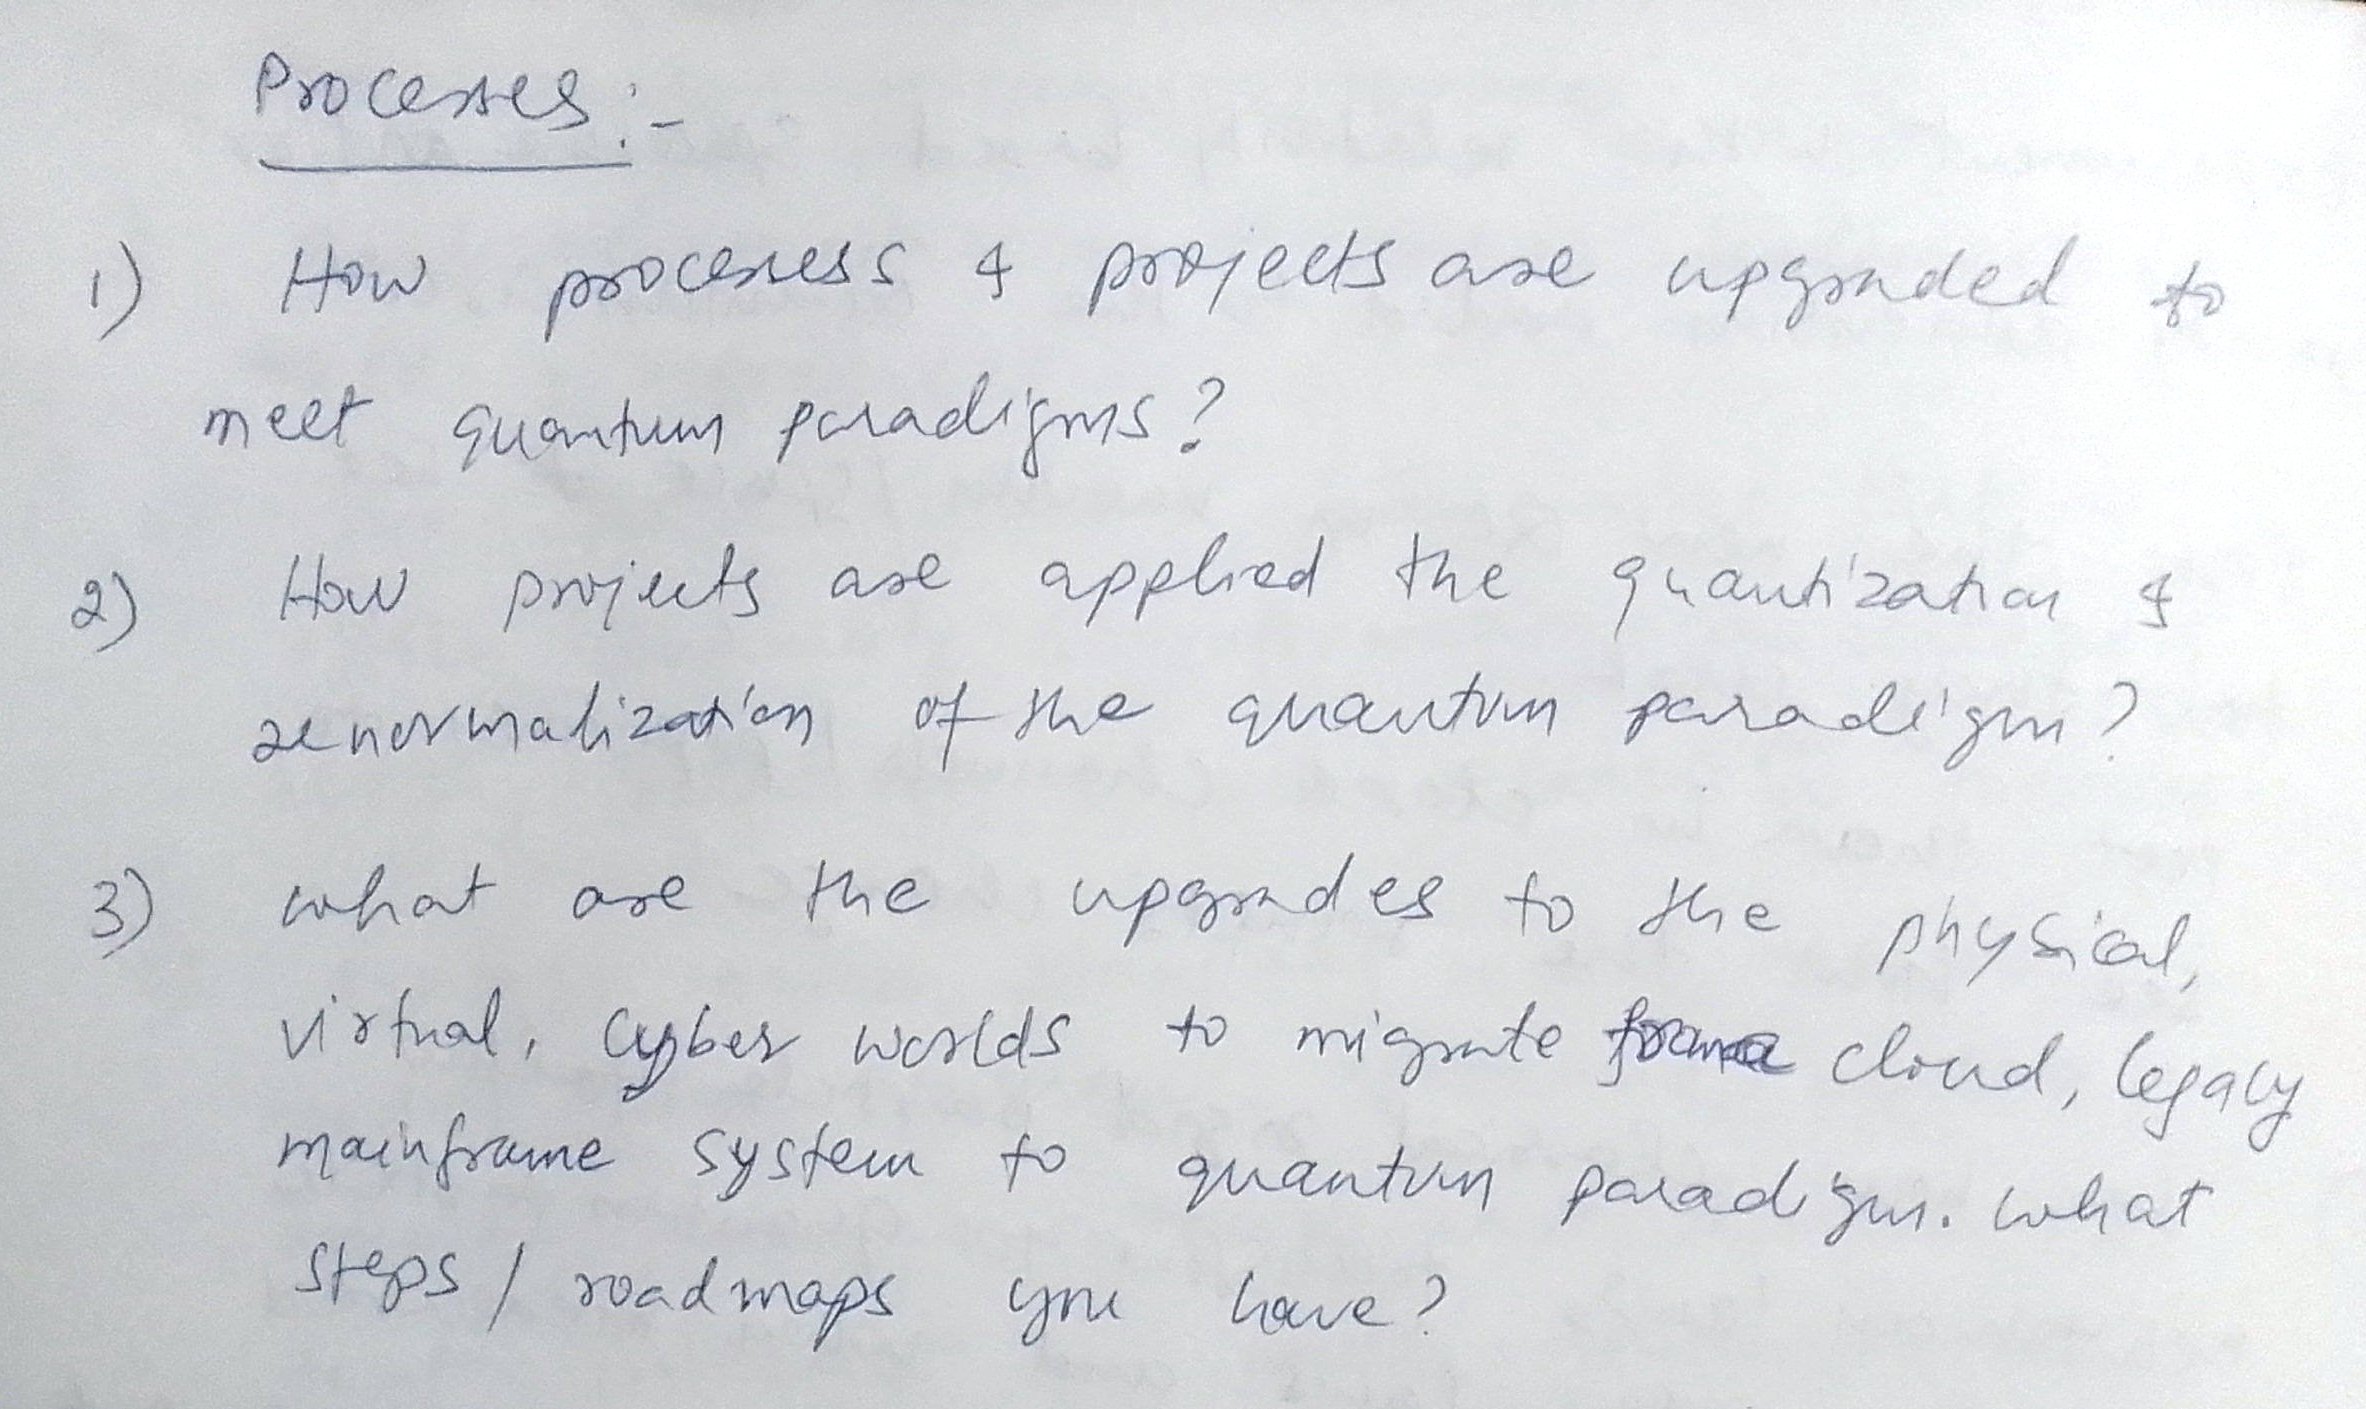 Processes:-
1) How processess & projects are upgraded to
meet quantum paradigms?
2) How projects are applied the quantization &
renormalization of the quantum paradigm?
3) what are the upgrades to the physical,
virtual, cyber worlds to migrate cloud, legacy
mainframe system to quantum paradigm. what
steps / roadmaps you have?